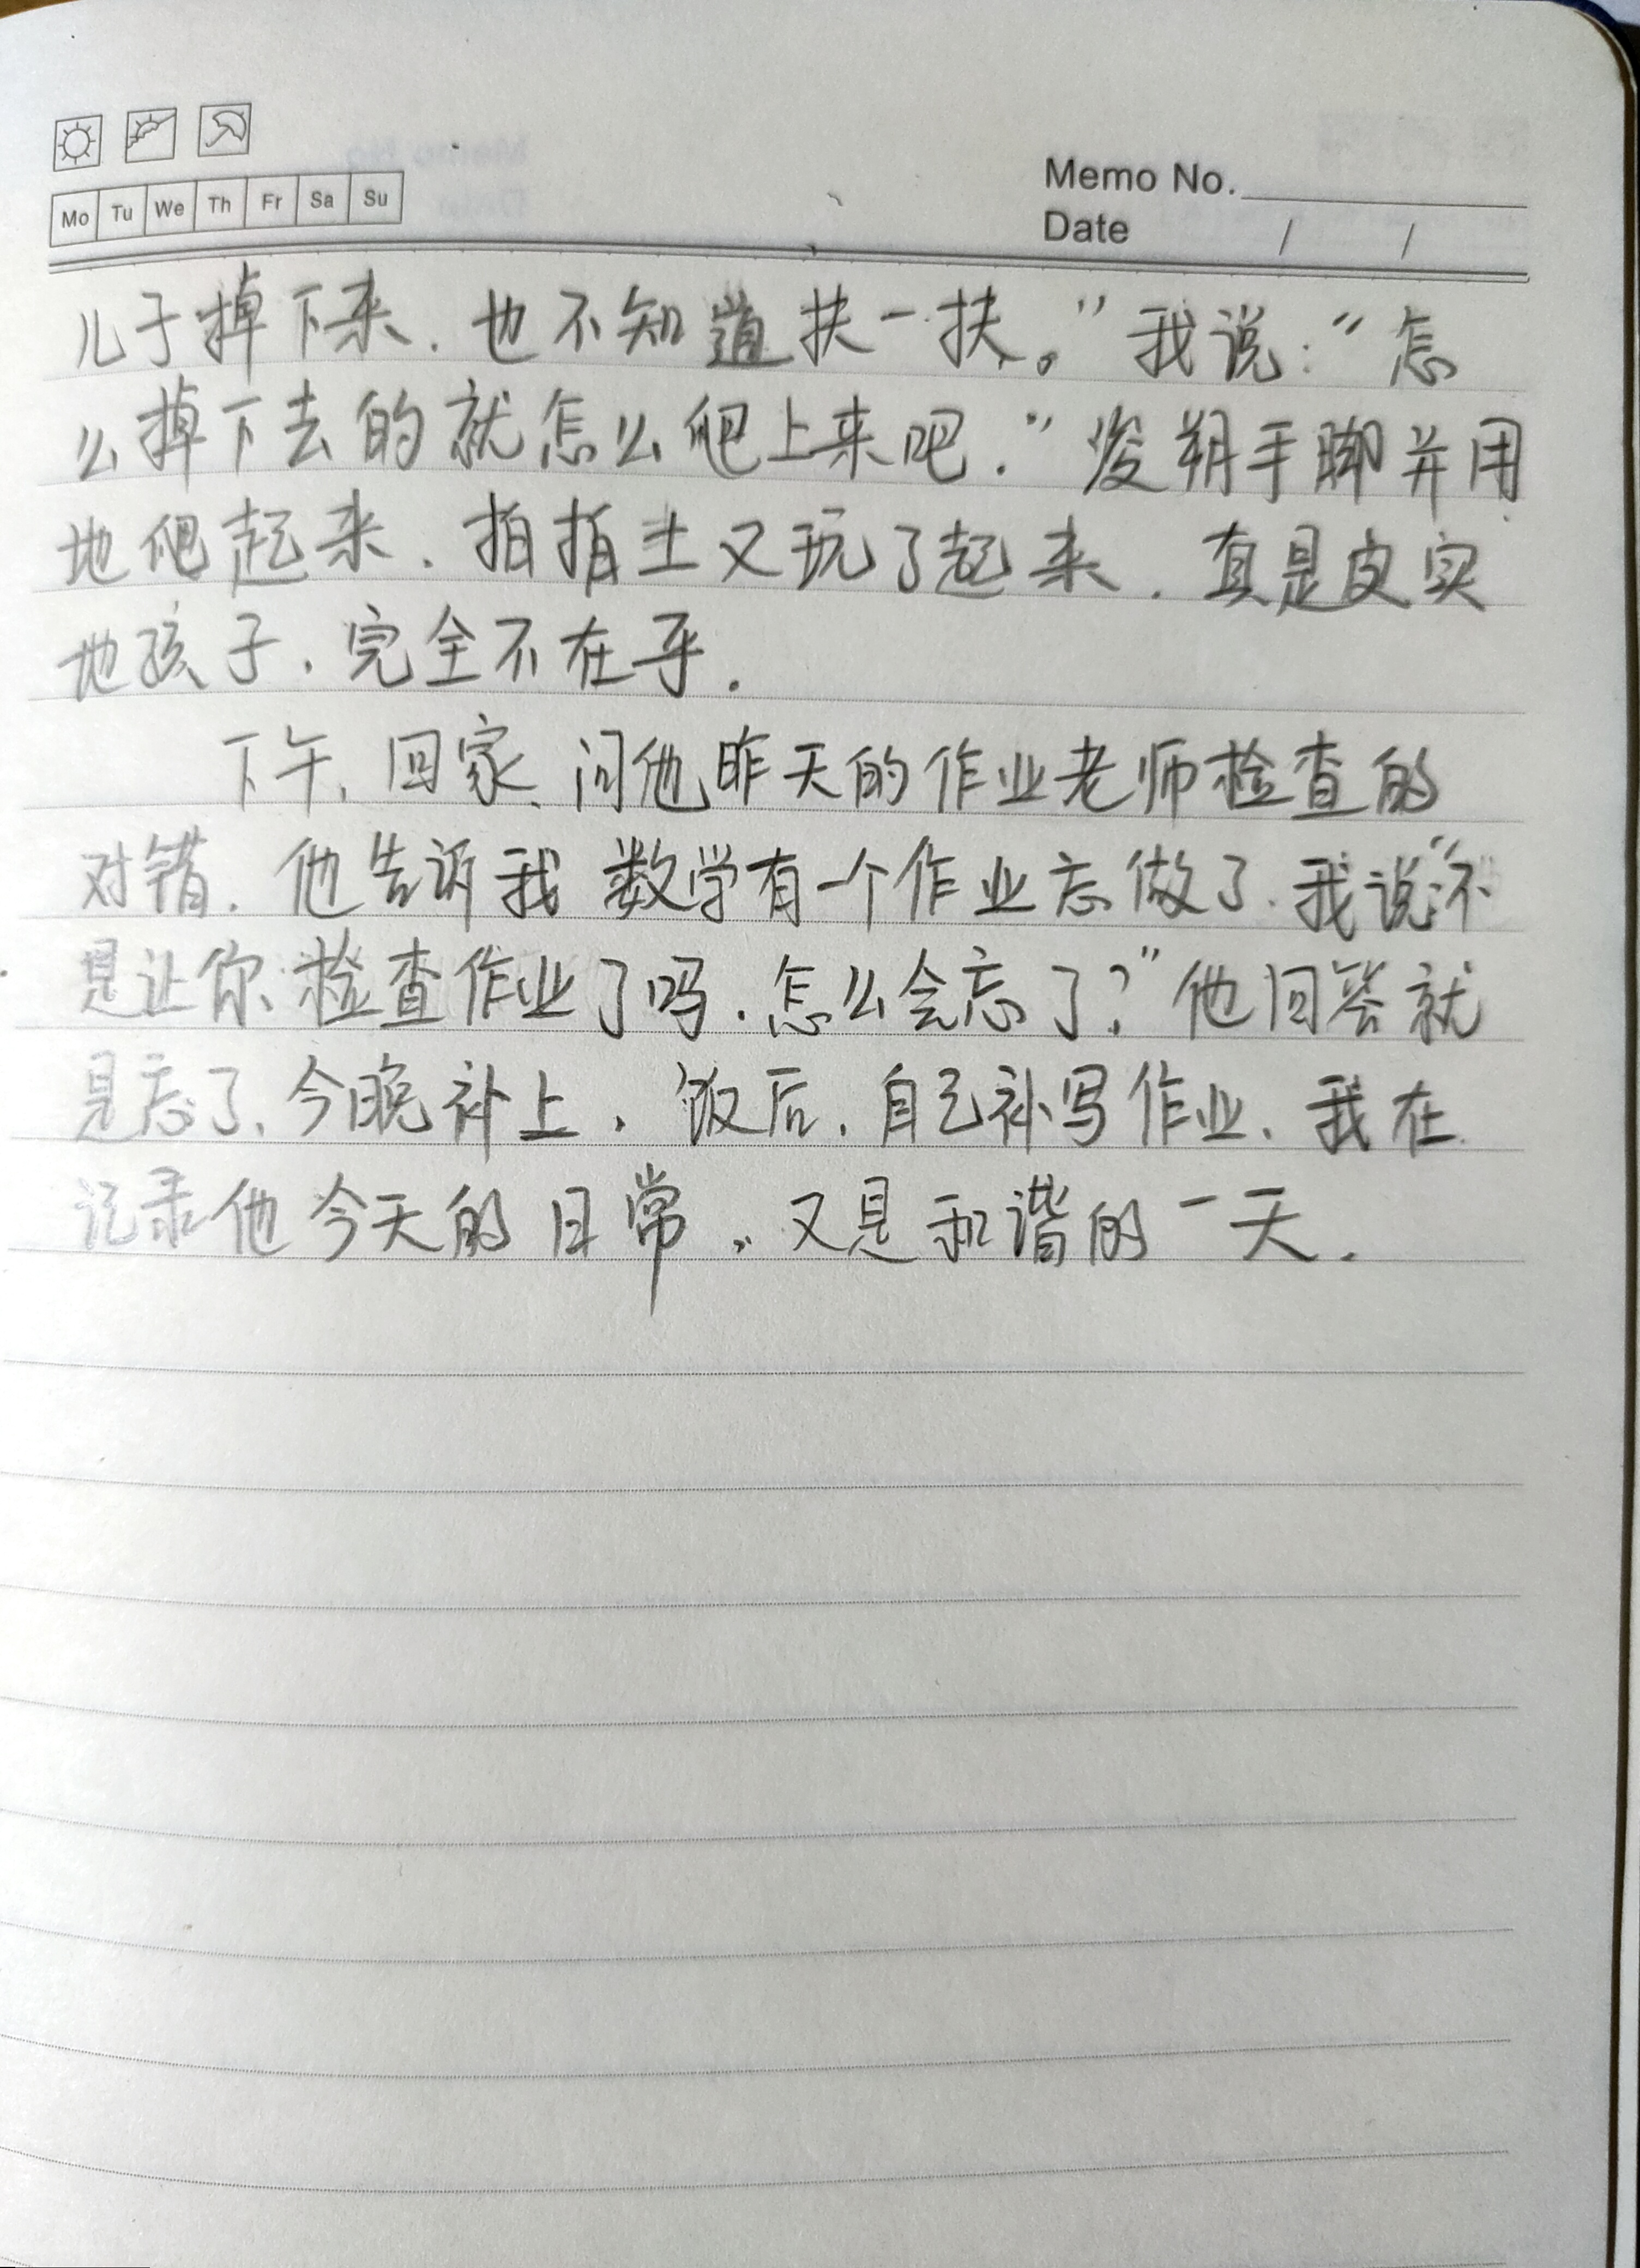 Mo Tu We Th Fr Sa Su
Memo No.
Date / /
儿子掉下来.也不知道扶一扶。"我说:"怎
么掉下去的就怎么爬上来吧."浚朔手脚并用
地爬起来.拍拍土又玩了起来.真是皮实
地孩子.完全不在乎.
下午.回家、问他昨天的作业老师检查的
对错.他告诉我数学有一个作业忘做了.我说:"不
是让你检查作业了吗.怎么会忘了?"他回答就
是忘了、今晚补上.饭后.自己补写作业、我在
记录他今天的日常。又是和谐的一天.